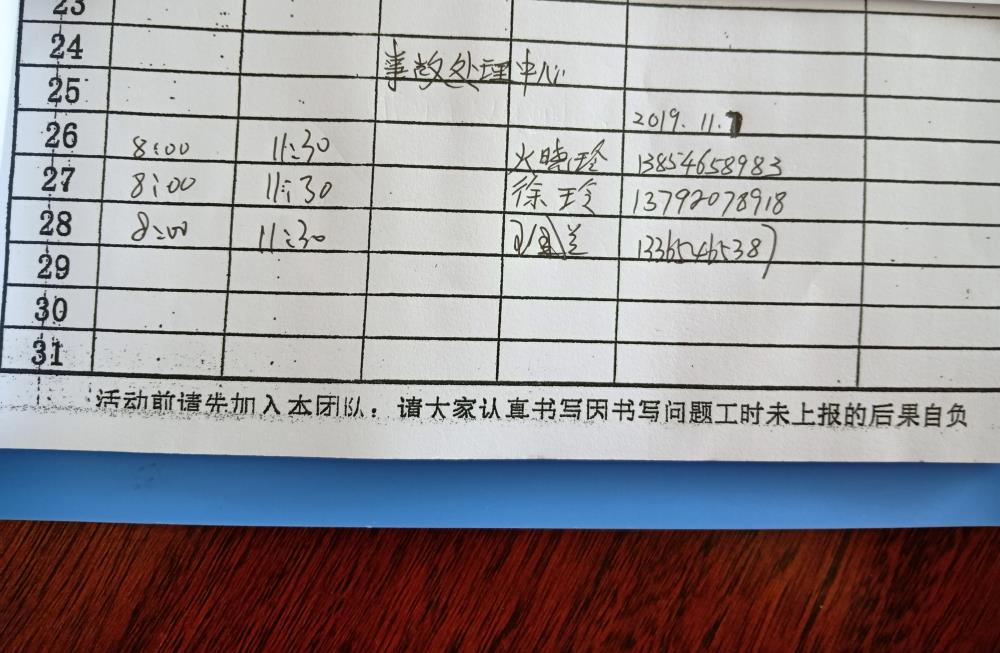 23
24
事故处理中心
25
2019.11.7
26 8:00 11:30 火晓玲 13854658983
27 8:00 11:30 徐玲 13792078918
28 8:00 11:30 兰 13365465387
29
30
31
活动前请先加入本团队：请大家认真书写因书写问题工时未上报的后果自负